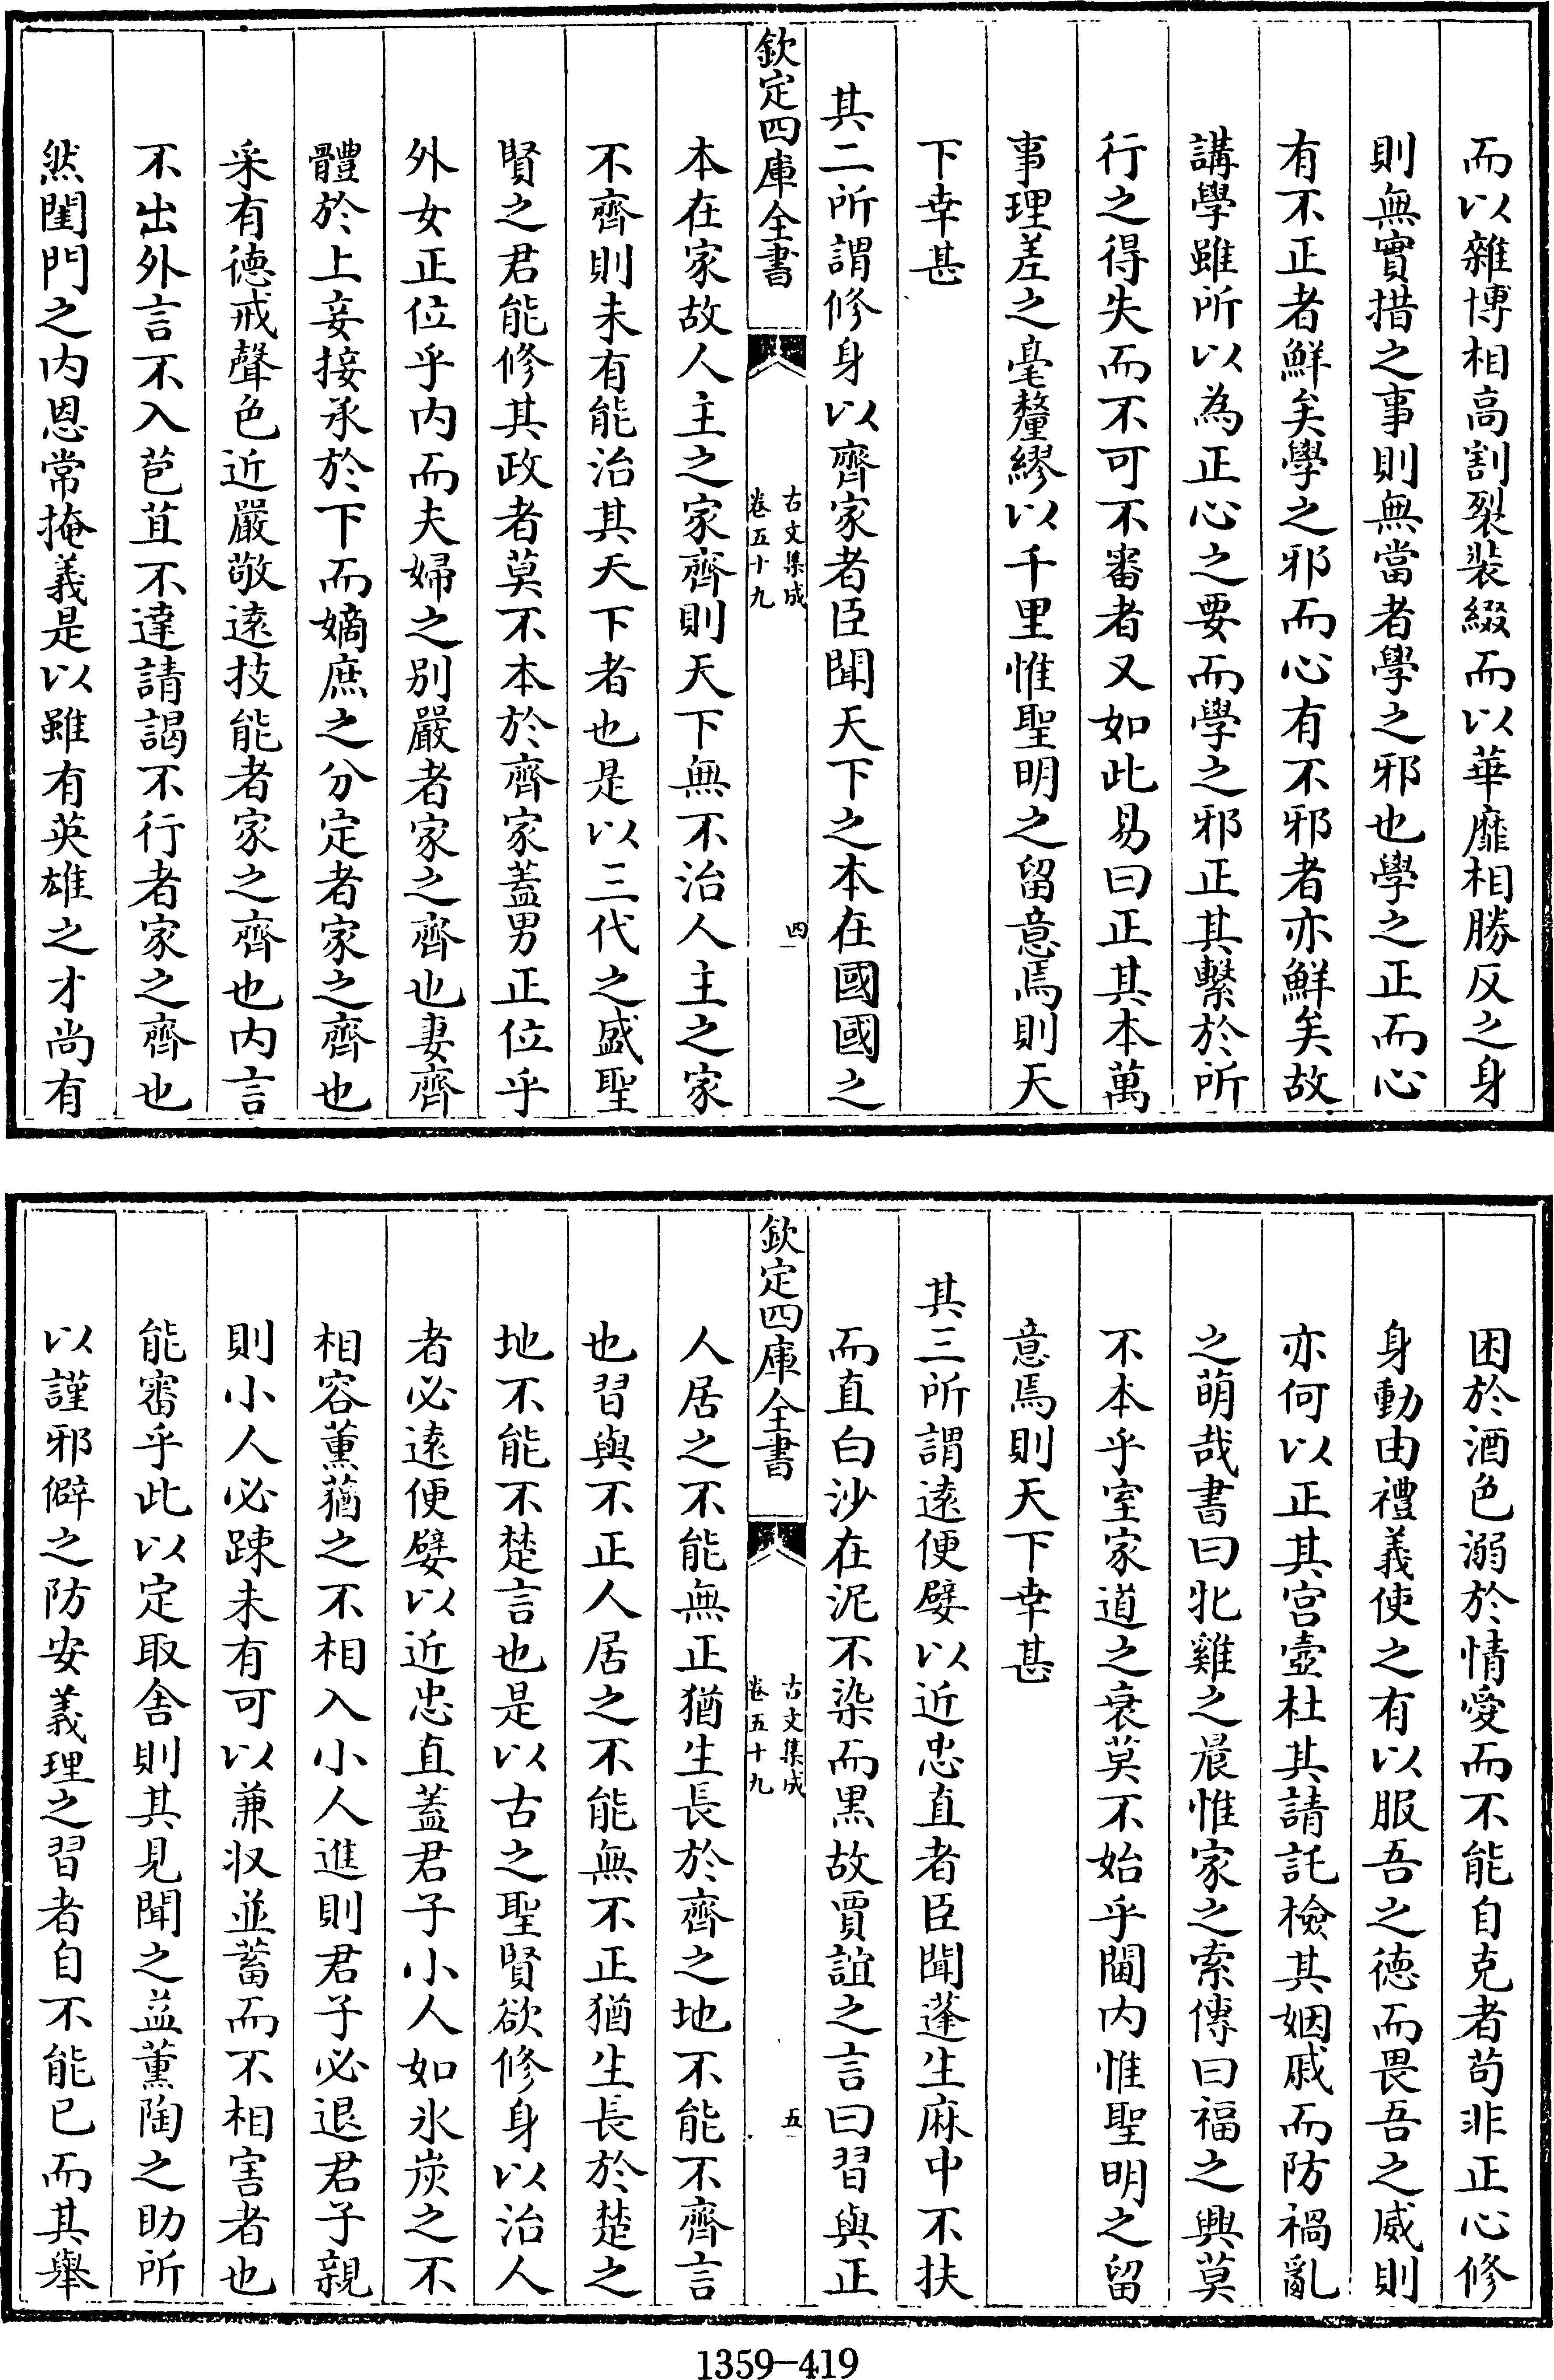 而以雜博相高割裂裝綴而以華靡相勝反之身
則無實措之事則無當者學之邪也學之正而心
有不正者鮮矣學之邪而心有不邪者亦鮮矣故
講學雖所以為正心之要而學之邪正其繫於所
行之得失而不可不審者又如此易曰正其本萬
事理差之毫釐繆以千里惟聖明之留意焉則天
下幸甚
其二所謂修身以齊家者臣聞天下之本在國國之
欽定四庫全書
古文集成
卷五十九
四
本在家故人主之家齊則天下無不治人主之家
不齊則未有能治其天下者也是以三代之盛聖
賢之君能修其政者莫不本於齊家蓋男正位乎
外女正位乎内而夫婦之别嚴者家之齊也妻齊
體於上妾接承於下而嫡庶之分定者家之齊也
采有德戒聲色近嚴敬逺技能者家之齊也内言
不出外言不入苞苴不達請謁不行者家之齊也
然閨門之内恩常掩義是以雖有英雄之才尚有
困於酒色溺於情愛而不能自克者苟非正心修
身動由禮義使之有以服吾之德而畏吾之威則
亦何以正其宫壼杜其請託檢其姻戚而防禍亂
之萌哉書曰牝雞之晨惟家之索傳曰福之興莫
不本乎室家道之衰莫不始乎閫内惟聖明之留
意焉則天下幸甚
其三所謂逺便嬖以近忠直者臣聞蓬生麻中不扶
而直白沙在泥不染而黑故賈誼之言曰習與正
欽定四庫全書
古文集成
卷五十九
五
人居之不能無正猶生長於齊之地不能不齊言
也習與不正人居之不能無不正猶生長於楚之
地不能不楚言也是以古之聖賢欲修身以治人
者必逺便嬖以近忠直蓋君子小人如氷炭之不
相容薰蕕之不相入小人進則君子必退君子親
則小人必踈未有可以兼収並蓄而不相害者也
能審乎此以定取舍則其見聞之益薫陶之助所
以謹邪僻之防安義理之習者自不能已而其舉
1359-419